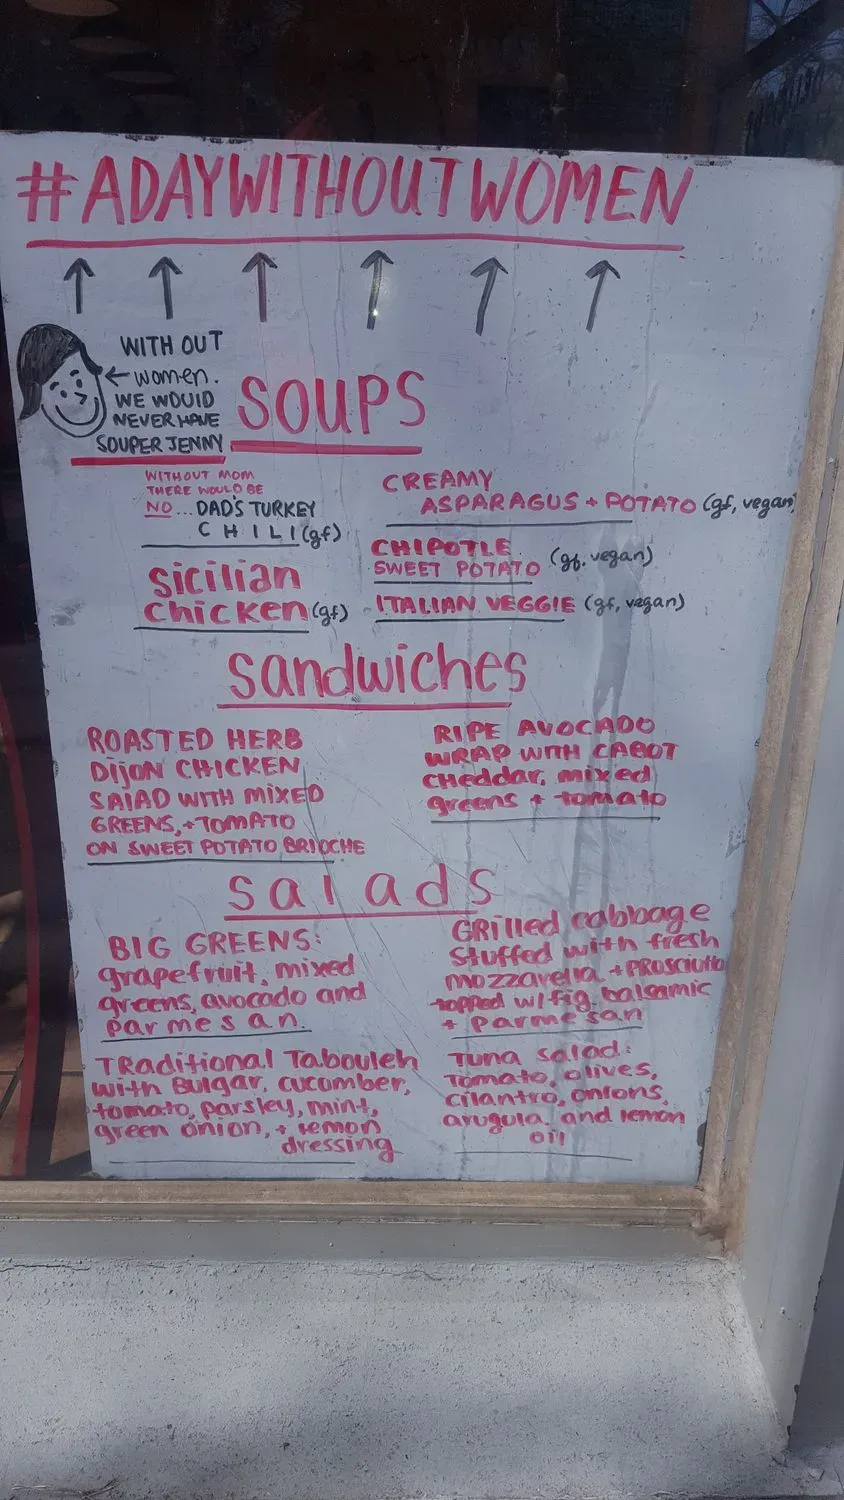 #ADAYWITHOUTWOMEN
WITH OUT
women.
WE WOULD
NEVER HAVE
SOUPER JENNY
SOUPS
WITHOUT MOM
THERE WOULD BE
NO... DAD'S TURKEY
CHILI (gf)
Sicilian
Chicken (gf)
CREAMY
ASPARAGUS + POTATO (gf, vegan)
CHIPOTLE
SWEET POTATO (gf. vegan)
ITALIAN VEGGIE (gf, vegan)
Sandwiches
ROASTED HERB
DIJON CHICKEN
SALAD WITH MIXED
GREENS, + TOMATO
ON SWEET POTATO BRIOCHE
RIPE AVOCADO
WRAP WITH CABOT
Cheddar, mixed
greens + tomato
Salads
BIG GREENS:
grapefruit, mixed
greens, avocado and
parmesan.
TRaditional Tabouleh
with Bulgar, cucumber,
tomato, parsley, mint,
green onion, + lemon
dressing
GRilled cabbage
Stuffed with fresh
mozzarella + PROSCIUTTO
topped w/ fig balsamic
+ parmesan
Tuna salad:
Tomato, olives,
cilantro, onions,
arugula, and lemon
oil